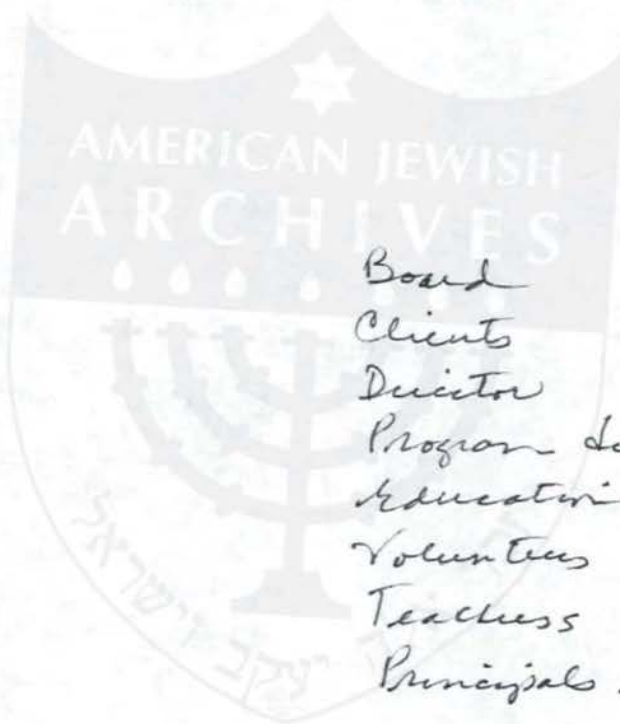 AMERICAN JEWISH
ARCHIVES
Board
Clients
Director
Program
Education
Volunteers
Teachers
Principals